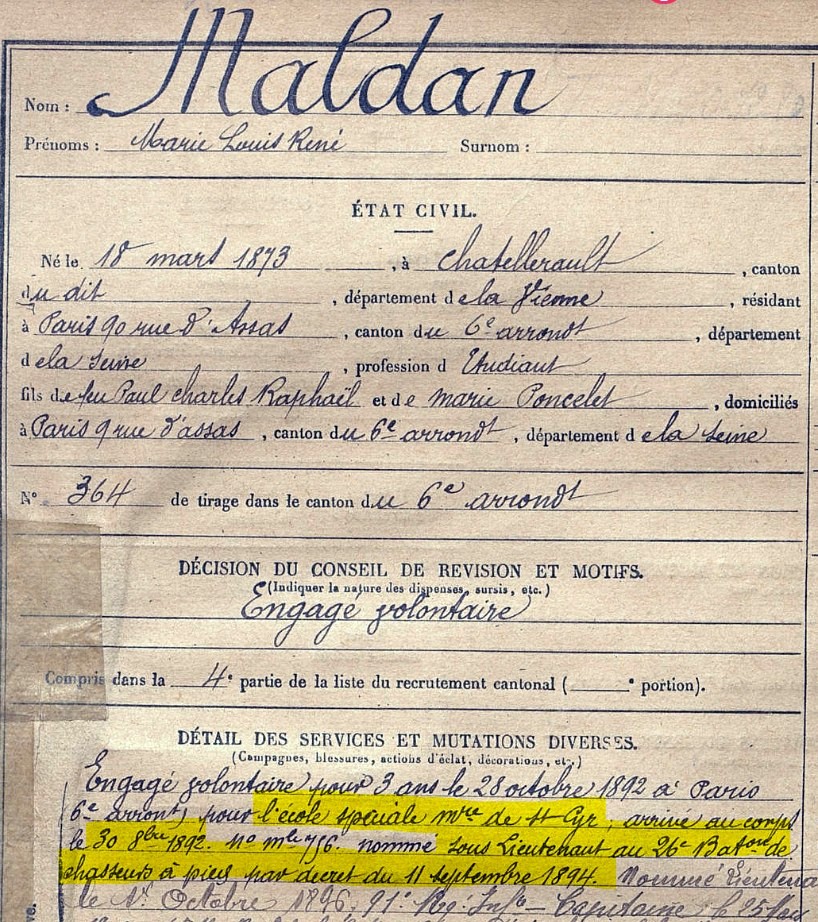 Nom : Maldan
Prénoms : Marie Louis René Surnom :
ÉTAT CIVIL.
Né le 18 mars 1873, à Chatellerault, canton
du dit, département de la Vienne, résidant
à Paris 90 rue d'Assas, canton du 6e arrondt, département
de la Seine, profession d Etudiant
fils de feu Paul charles Raphaël et de marie Poncelet, domiciliés
à Paris 9 rue d'assas, canton du 6e arrondt, département de la Seine
N° 364 de tirage dans le canton du 6e arrondt
DÉCISION DU CONSEIL DE REVISION ET MOTIFS.
(Indiquer la nature des dispenses, sursis, etc.)
Engagé volontaire
Compris dans la 4e partie de la liste du recrutement cantonal ( e portion).
DÉTAIL DES SERVICES ET MUTATIONS DIVERSES.
(Campagnes, blessures, actions d'éclat, décorations, etc.)
Engagé volontaire pour 3 ans le 28 octobre 1892 à Paris
6e arront) pour l'école spéciale mre de St Cyr, arrivé au corps
le 30 8bre 1892. no mle 756. nommé sous Lieutenant au 26e Baton de
chasseurs à pied par decret du 11 septembre 1894. Nommé Lieutena
le 1r Octobre 1896. 91e Reg: Infie Capitaine le 25